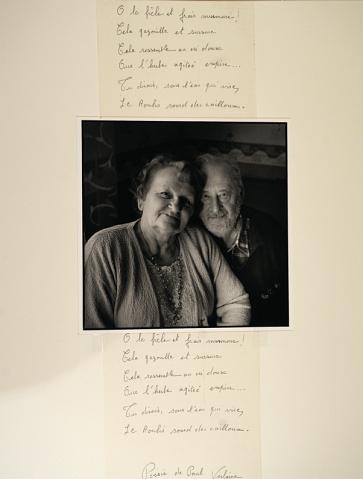 O le frêle et frais murmure !
Cela gazouille et susurre
Cela ressemble au cri doux
Que l'herbe agitée expire...
Tu dirais, sous l'eau qui vire,
Le Roulis sourd des cailloux.
O le frêle et frais murmure !
Cela gazouille et susurre
Cela ressemble au cri doux
Que l'herbe agitée expire...
Tu dirais, sous l'eau qui vire,
Le Roulis sourd des cailloux.
Poésie de Paul Verlaine